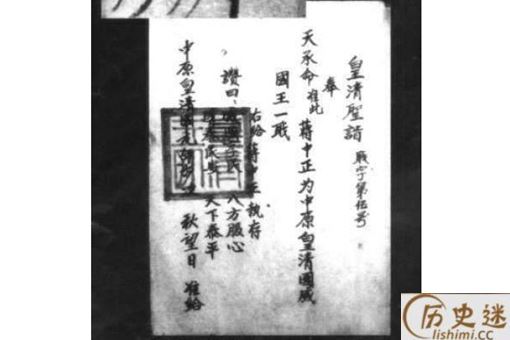 皇清聖誥 戰字第伍号
奉
天承命准此 蔣中正为中原皇清國威
國王一戰
右给蔣中正执存
讚曰 民 八方服心
天下泰平
中原皇清 秋望日 准给
历史迷
lishimi.cc